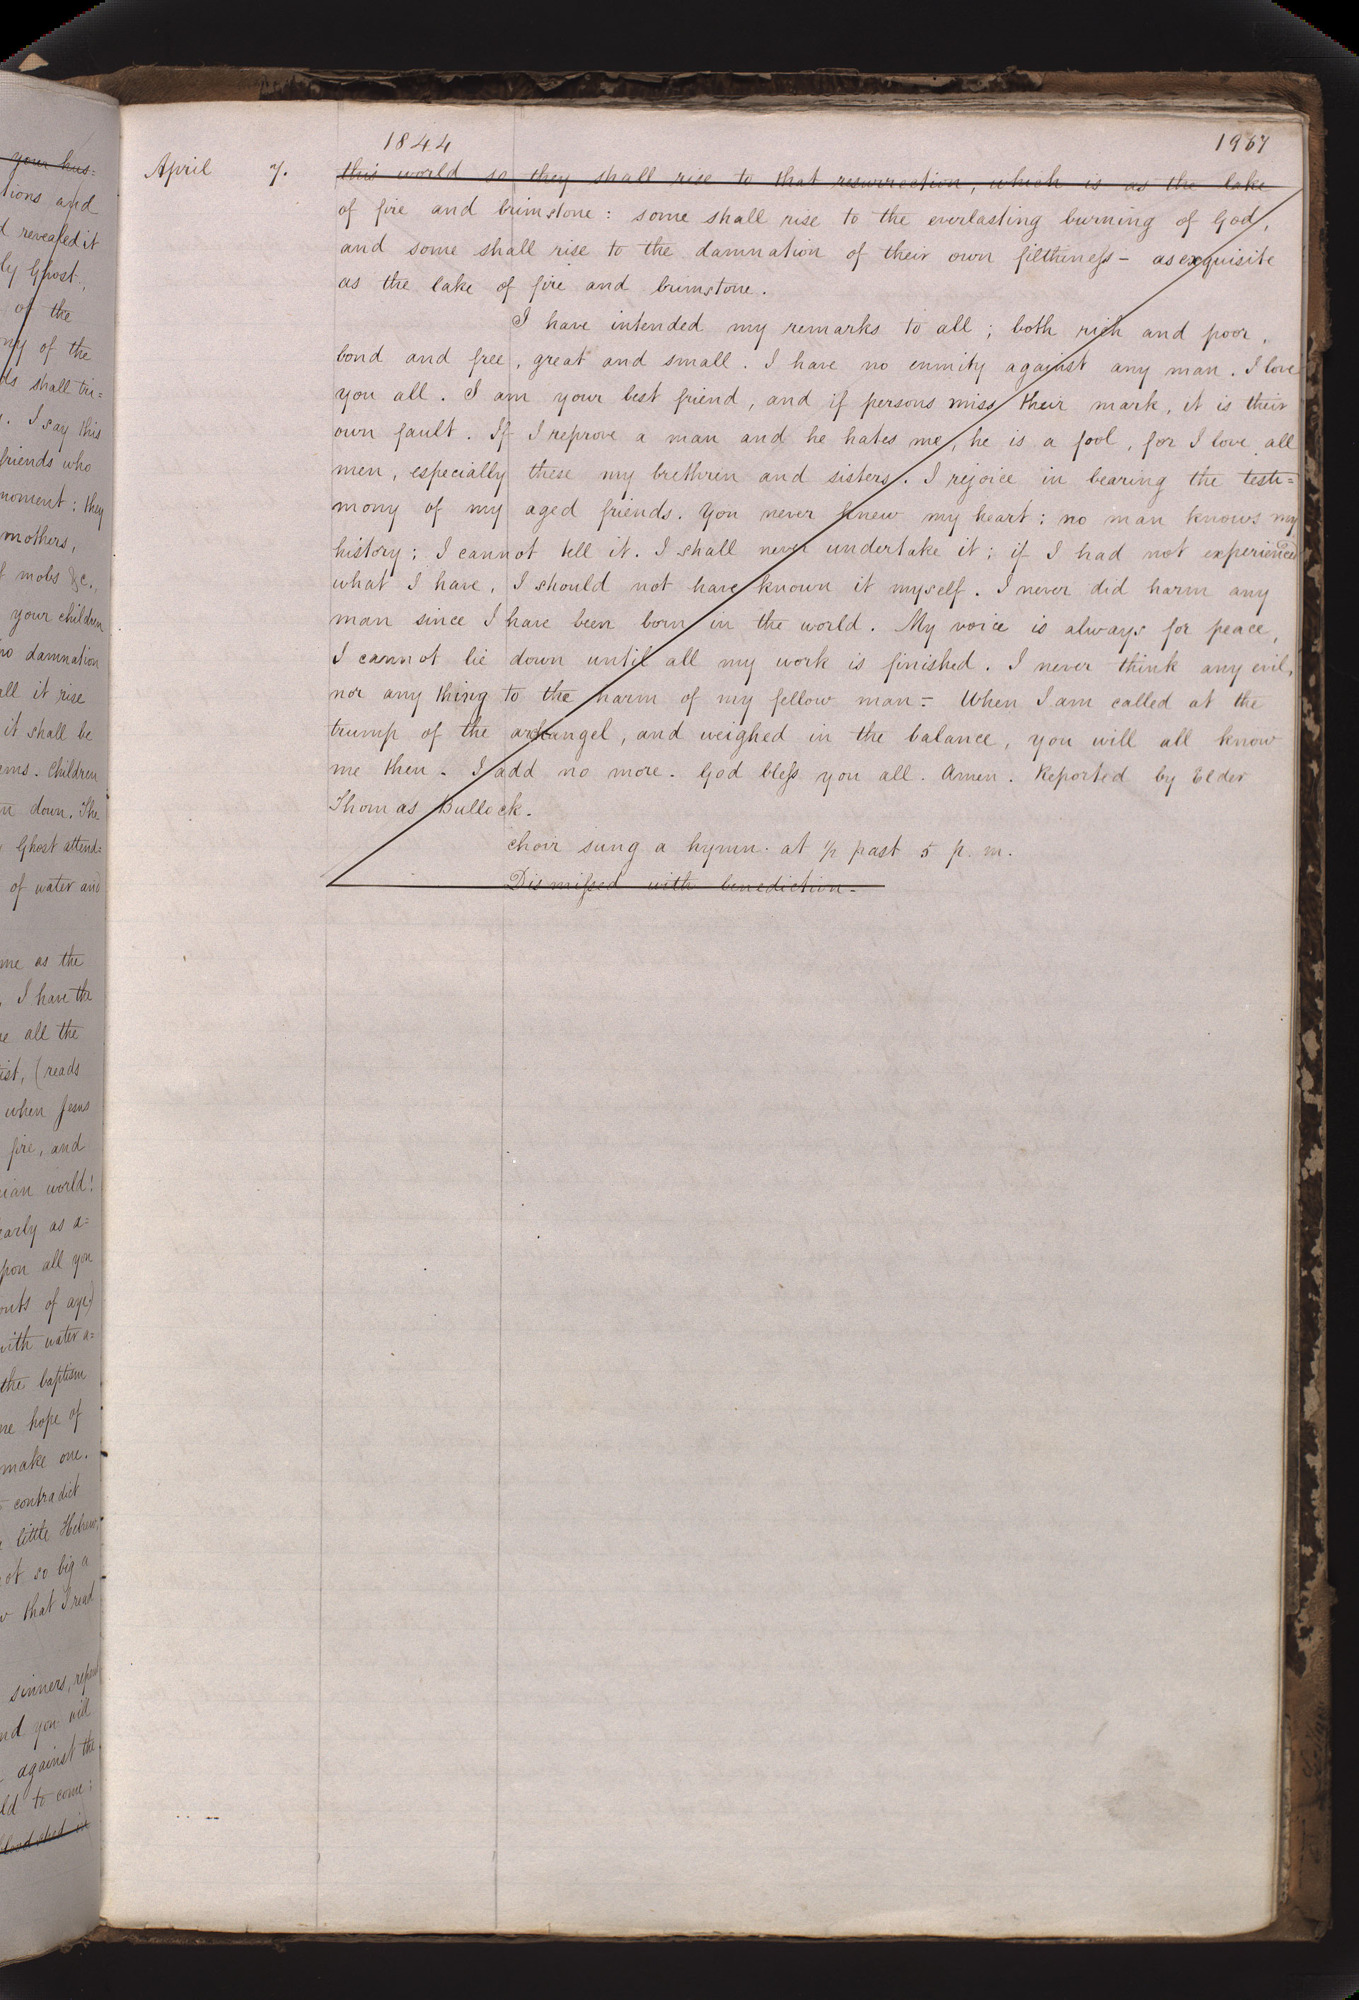 your hus=
tions and
d revealed it
ly Ghost,
of the
ny of the
ds shall tri=
. I say this
friends who
moment: they
mothers,
f mobs &c.,
your children
no damnation
all it rise
it shall be
ems. Children
n down. The
Ghost attend=
of water and
me as the
, I have the
e all the
ist, (reads
when Jesus
fire, and
ian world!
early as a=
pon all you
ents of age)
with water a=
the baptism
ne hope of
make one.
contradict
little Hebrew,
ot so big a
w that I read
sinners, repent
nd you will
against the
ld to come:
blood shed in
1844 1967
April 7. this world so they shall rise to that resurrection, which is as the lake
of fire and brimstone: some shall rise to the everlasting burning of God,
and some shall rise to the damnation of their own filthiness – as exquisite
as the lake of fire and brimstone.
I have intended my remarks to all; both rich and poor,
bond and free, great and small. I have no enmity against any man. I love
you all. I am your best friend, and if persons miss their mark, it is their
own fault. If I reprove a man and he hates me, he is a fool, for I love all
men, especially these my brethren and sisters. I rejoice in bearing the testi=
mony of my aged friends. You never knew my heart; no man knows my
history; I cannot tell it. I shall never undertake it; if I had not experienced
what I have, I should not have known it myself. I never did harm any
man since I have been born in the world. My voice is always for peace,
I cannot lie down until all my work is finished. I never think any evil,
nor any thing to the harm of my fellow man – When I am called at the
trump of the archangel, and weighed in the balance, you will all know
me then. I add no more. God bless you all. Amen. Reported by Elder
Thomas Bullock.
Choir sung a hymn. at ½ past 5 p.m.
Dismissed with benediction –